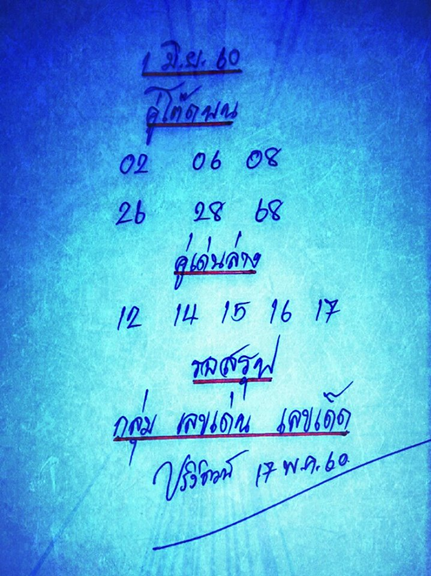 1 มิ.ย. 60
คู่โต๊ดบน
02 06 08
26 28 68
คู่เด่นล่าง
12 14 15 16 17
รอสรุป
กลุ่ม เลขเด่น เลขเด็ด
17 พ.ค. 60